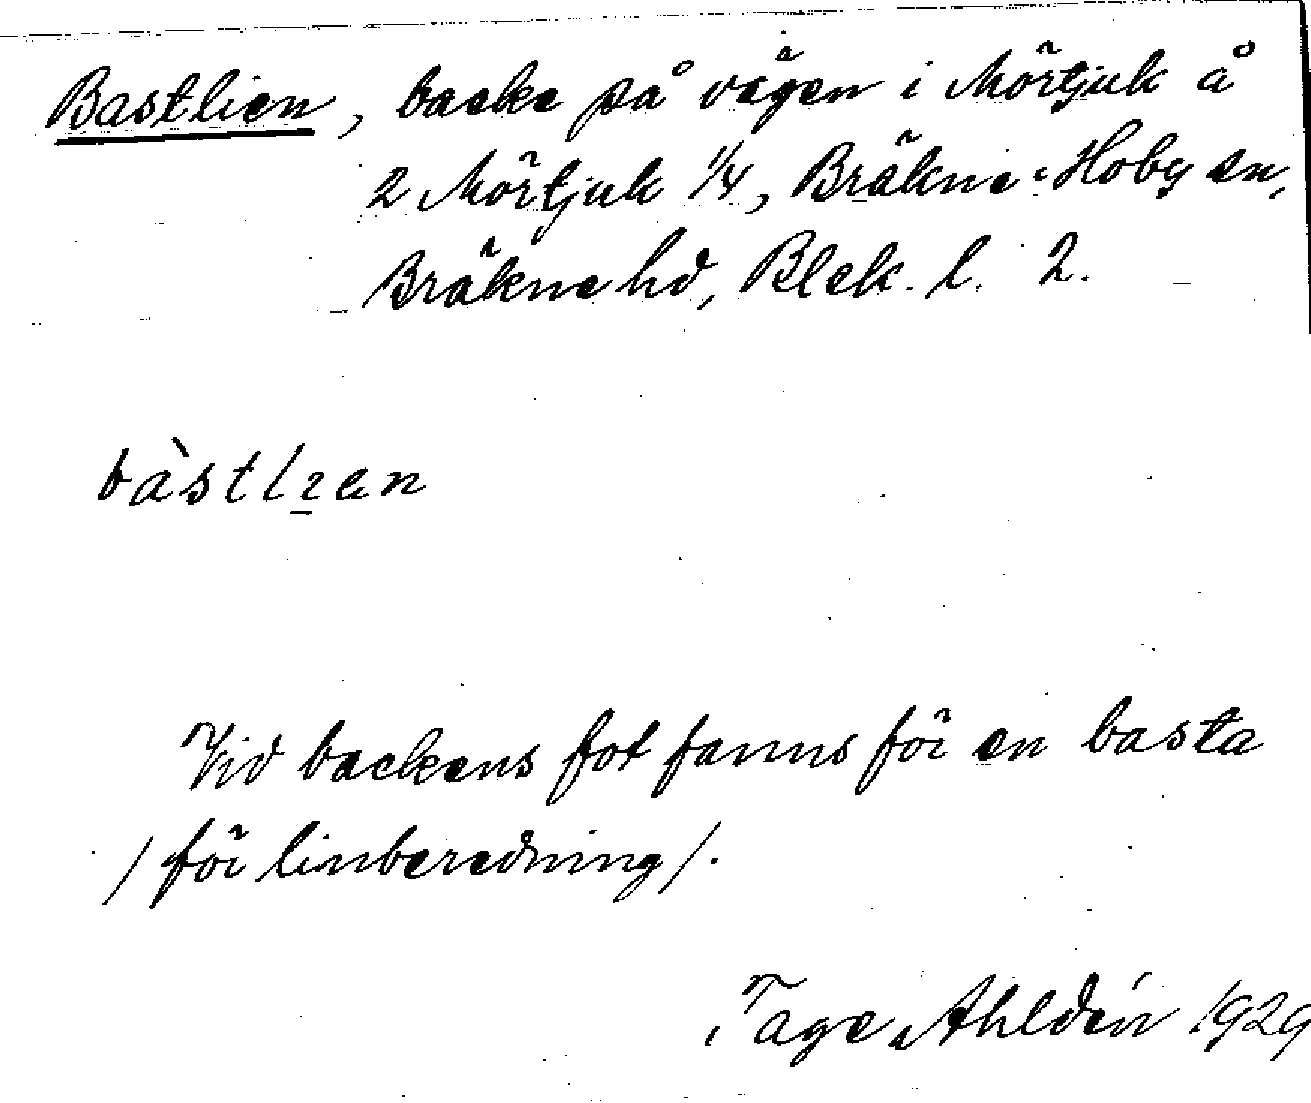 Bastlien, backe på vägen i Mörtjuk å
2 Mörtjuk 1/4, Bräkne-Hoby sn,
Bräkne hd, Blek. l. 2.
bàstlɪ̱en
Vid backens fot fanns för en basta
/för linberedning/.
Tage Ahldén 1929